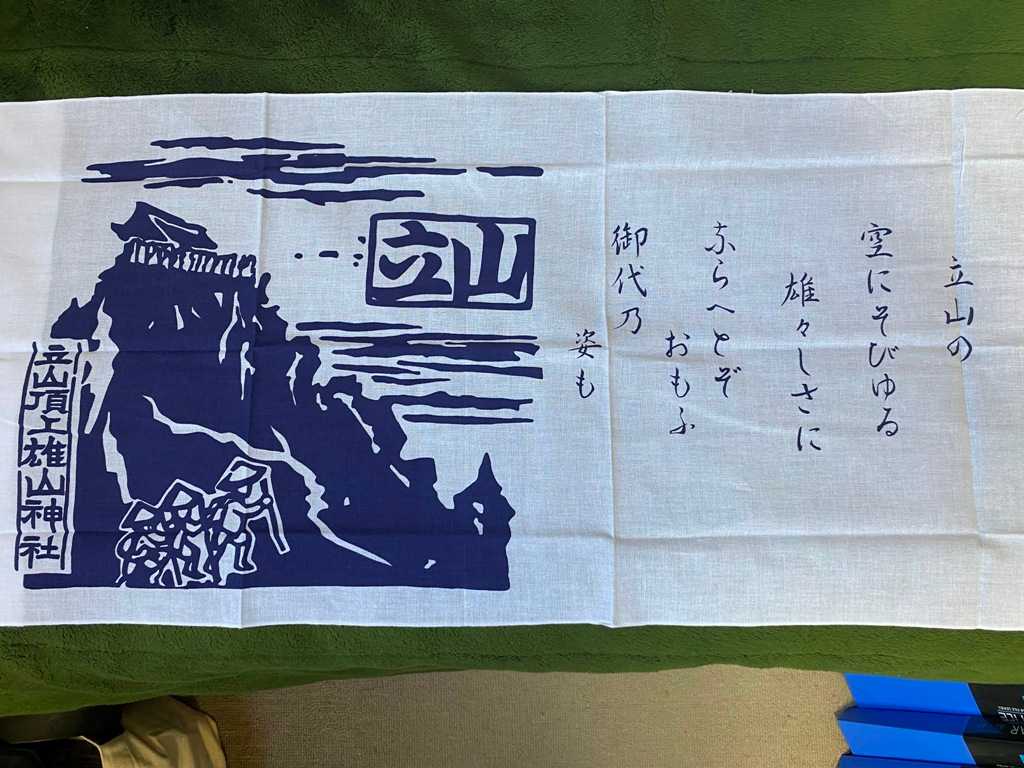 立山の
空にそびゆる
雄々しさに
ならへとぞ
おもふ
御代乃
姿も
立山
立山頂上雄山神社